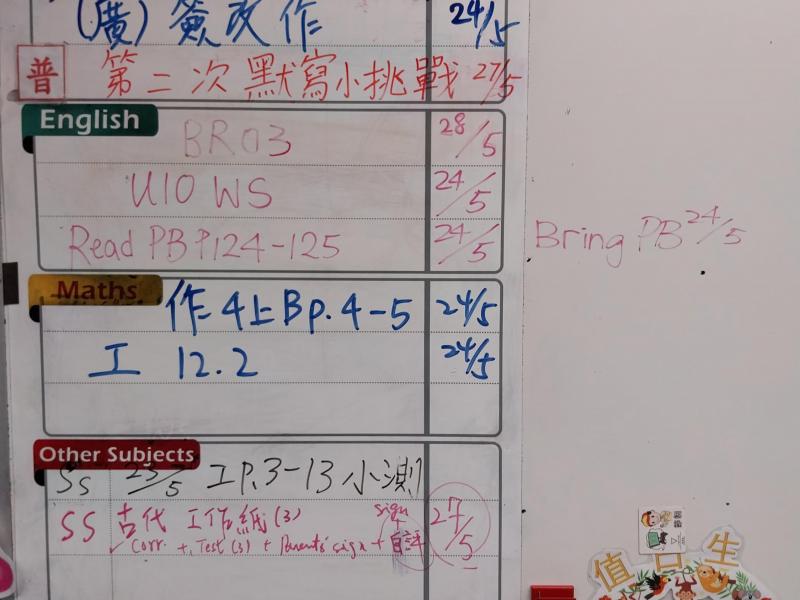 (廣)簽改作 24/5
普 第二次默寫小挑戰 27/5
English
BR03 28/5
U10 WS 24/5
Read PB P.124-125 24/5
Bring PB 24/5
Maths
作4上B p.4-5 24/5
工 12.2 24/5
Other Subjects
SS 23/5 工P.3-13 小測
SS 古代 工作紙(3) sign 27/5
✓ Corr. + Test(3) + Parents' sign + 自評
值日生